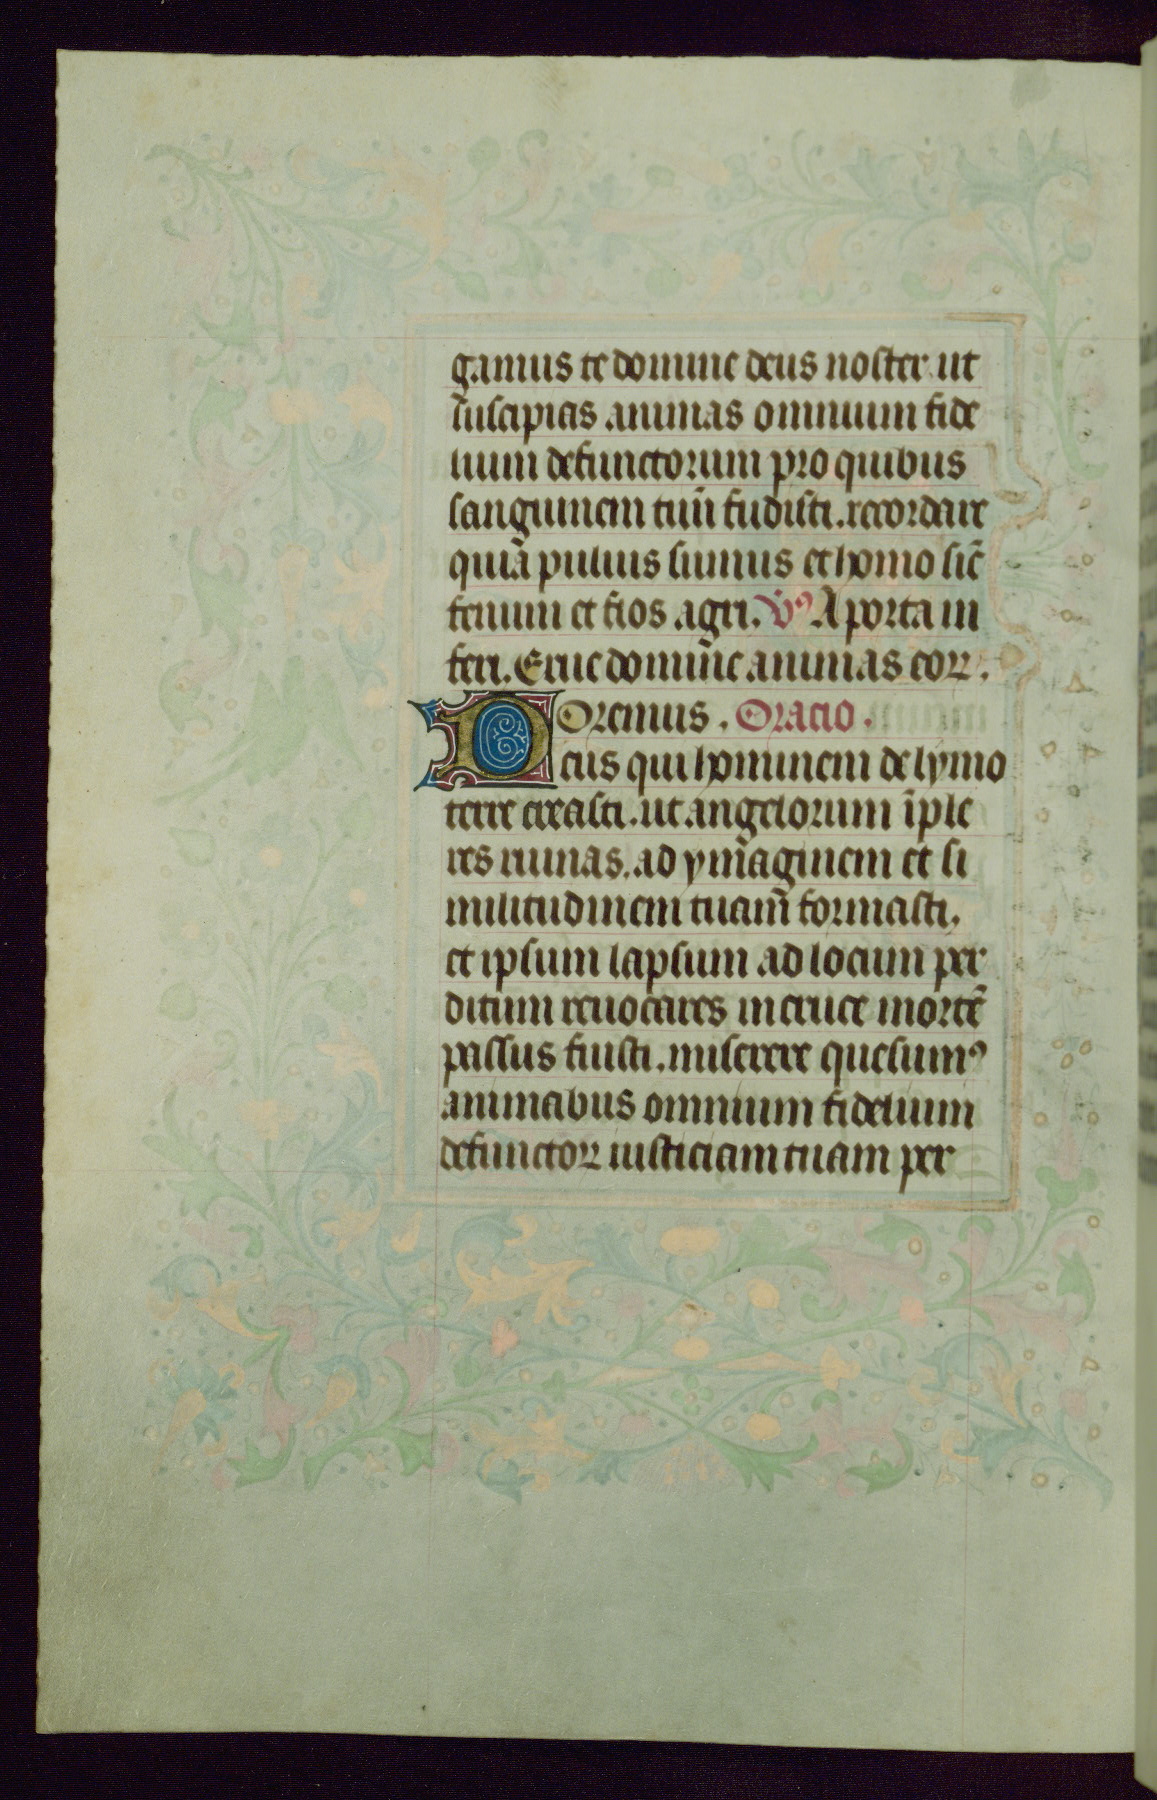 gamus te domine deus noster ut
suscipias animas omnium fide
lium defunctorum pro quibus
sanguinem tuū fudisti. recordare
quiā puluis sumus et homo sic̄
fenum et flos agri. V̓ A porta in
feri. Erue domin̄e animas eoꝝ.
Oremus. Oracio.
Deus qui hominem de lymo
terre creasti. ut angelorum īple
res ruinas. ad ymāginem et si
militudinem tuam̄ formasti,
et ipsum lapsum ad locum per
ditum reuocares in cruce mortē
passus fuisti. miserere quesumꝰ
animabus omnium fidelium
defunctoꝝ iusticiam tuam per